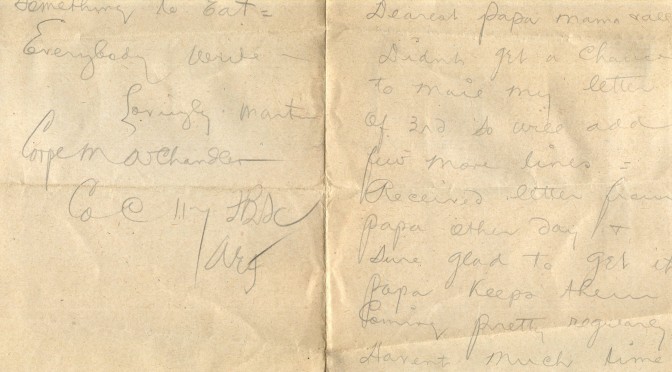 something to Eat =
Everybody write —
Lovingly Martin
Corp M A Chandler
Co C 117
Dearest papa mama &
Didnt get a chance
to mail my letter
of 3rd so will add
few more lines =
Received letter from
papa other day &
Sure glad to get it
papa Keeps them
Coming pretty
Havent much time